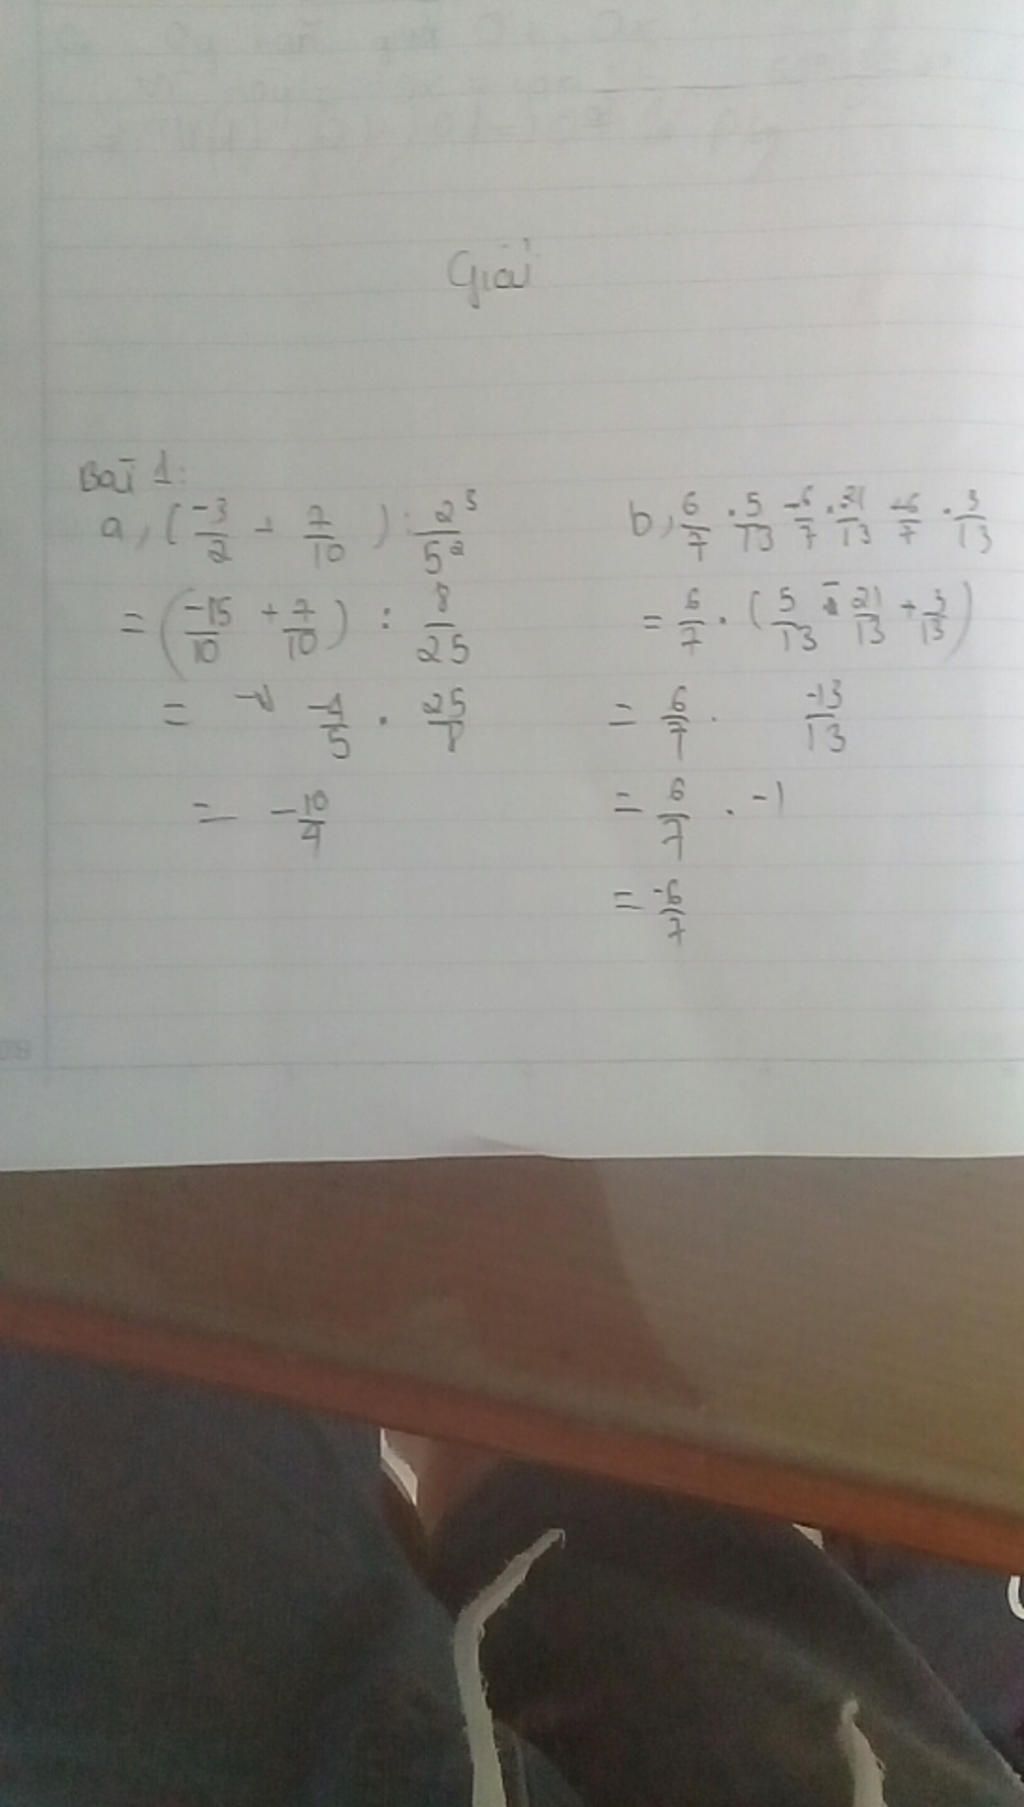 Giải
Bài 1:
a, (-3/2 + 7/10) : 2³/5²
= (-15/10 + 7/10) : 8/25
= -4/5 . 25/8
= -10/4
b, 6/7 . 5/13 - 6/7 . 21/13 + 6/7 . 3/13
= 6/7 . (5/13 - 21/13 + 3/13)
= 6/7 . -13/13
= 6/7 . -1
= -6/7